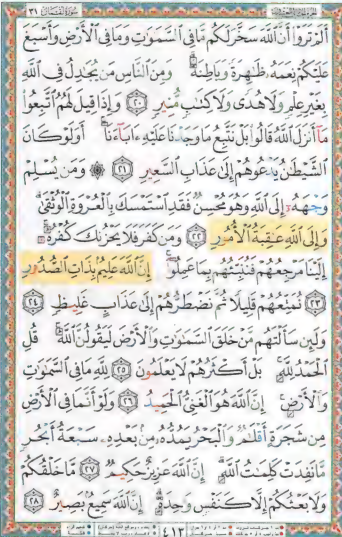 سُورَةُ لُقْمَان ٣١
أَلَمْ تَرَوْا أَنَّ ٱللَّهَ سَخَّرَ لَكُم مَّا فِى ٱلسَّمَٰوَٰتِ وَمَا فِى ٱلْأَرْضِ وَأَسْبَغَ
عَلَيْكُمْ نِعَمَهُۥ ظَٰهِرَةً وَبَاطِنَةً ۗ وَمِنَ ٱلنَّاسِ مَن يُجَٰدِلُ فِى ٱللَّهِ
بِغَيْرِ عِلْمٍ وَلَا هُدًى وَلَا كِتَٰبٍ مُّنِيرٍ ٢٠ وَإِذَا قِيلَ لَهُمُ ٱتَّبِعُوا۟
مَآ أَنزَلَ ٱللَّهُ قَالُوا۟ بَلْ نَتَّبِعُ مَا وَجَدْنَا عَلَيْهِ ءَابَآءَنَآ ۚ أَوَلَوْ كَانَ
ٱلشَّيْطَٰنُ يَدْعُوهُمْ إِلَىٰ عَذَابِ ٱلسَّعِيرِ ٢١ ۞ وَمَن يُسْلِمْ
وَجْهَهُۥٓ إِلَى ٱللَّهِ وَهُوَ مُحْسِنٌ فَقَدِ ٱسْتَمْسَكَ بِٱلْعُرْوَةِ ٱلْوُثْقَىٰ ۗ
وَإِلَى ٱللَّهِ عَٰقِبَةُ ٱلْأُمُورِ ٢٢ وَمَن كَفَرَ فَلَا يَحْزُنكَ كُفْرُهُۥٓ ۚ
إِلَيْنَا مَرْجِعُهُمْ فَنُنَبِّئُهُم بِمَا عَمِلُوٓا۟ ۚ إِنَّ ٱللَّهَ عَلِيمٌۢ بِذَاتِ ٱلصُّدُورِ
٢٣ نُمَتِّعُهُمْ قَلِيلًا ثُمَّ نَضْطَرُّهُمْ إِلَىٰ عَذَابٍ غَلِيظٍ ٢٤
وَلَئِن سَأَلْتَهُم مَّنْ خَلَقَ ٱلسَّمَٰوَٰتِ وَٱلْأَرْضَ لَيَقُولُنَّ ٱللَّهُ ۚ قُلِ
ٱلْحَمْدُ لِلَّهِ ۚ بَلْ أَكْثَرُهُمْ لَا يَعْلَمُونَ ٢٥ لِلَّهِ مَا فِى ٱلسَّمَٰوَٰتِ
وَٱلْأَرْضِ ۚ إِنَّ ٱللَّهَ هُوَ ٱلْغَنِىُّ ٱلْحَمِيدُ ٢٦ وَلَوْ أَنَّمَا فِى ٱلْأَرْضِ
مِن شَجَرَةٍ أَقْلَٰمٌ وَٱلْبَحْرُ يَمُدُّهُۥ مِنۢ بَعْدِهِۦ سَبْعَةُ أَبْحُرٍ
مَّا نَفِدَتْ كَلِمَٰتُ ٱللَّهِ ۗ إِنَّ ٱللَّهَ عَزِيزٌ حَكِيمٌ ٢٧ مَّا خَلْقُكُمْ
وَلَا بَعْثُكُمْ إِلَّا كَنَفْسٍ وَٰحِدَةٍ ۗ إِنَّ ٱللَّهَ سَمِيعٌۢ بَصِيرٌ ٢٨
٤١٣